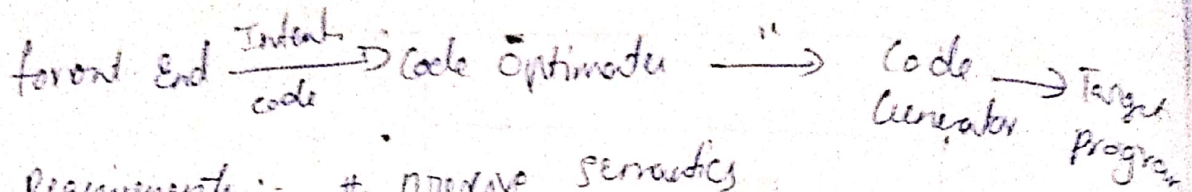 foront End Intent. code → Code Optimater " → Code Generator → Target Program
Requirements :- # preserve semantics